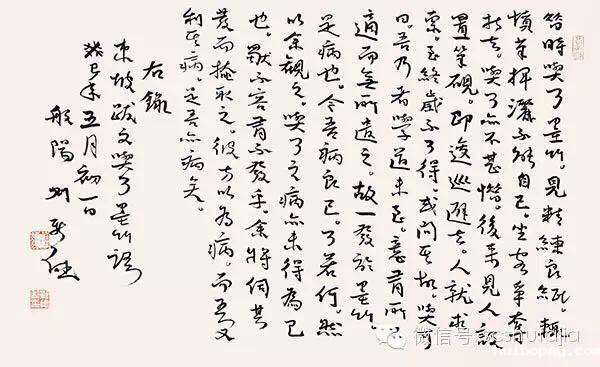 昔時與可墨竹。見精縑良紙。輒
憤筆揮灑不能自已。坐客爭奪
持去。與可亦不甚惜。後來見人設
置筆硯。即逡巡避去。人就求
索。至終歲不可得。或問其故。與可
曰。吾乃者學道未至。意有所不
適而無所遣之。故一發於墨竹。
是病也。今吾病良已。可若何。然
以余觀之。與可之病亦未得為已
也。獨不容有不發乎。余將伺其
發而掩取之。彼方以為病。而吾又
利其病。是吾亦病矣。
右錄
東坡跋文與可墨竹語
癸巳年五月初一日
般陽
微信号: ccshufajia